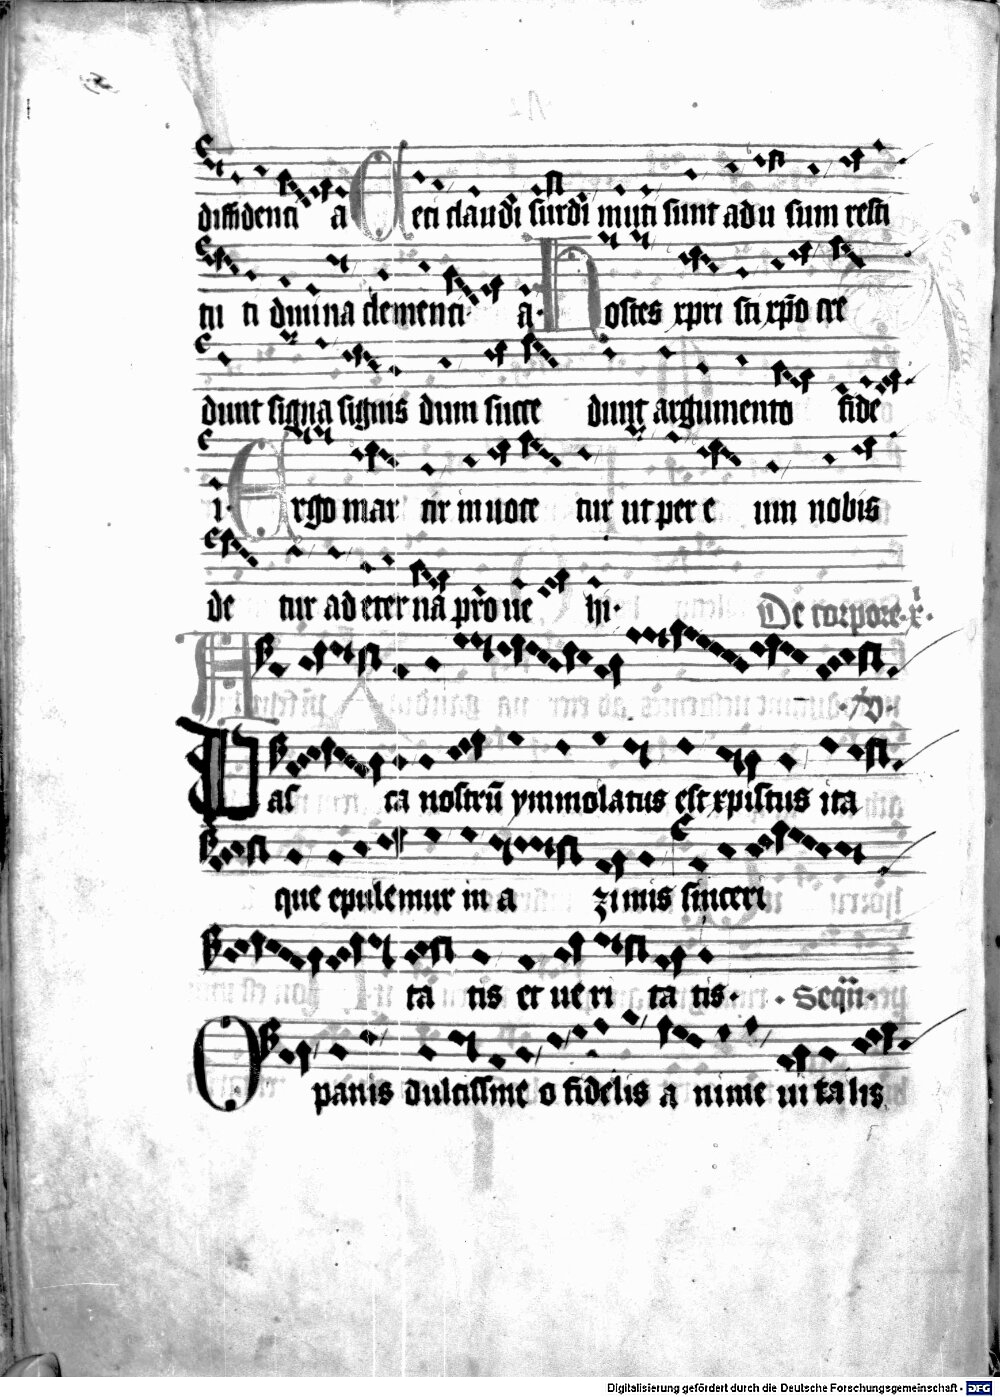 diffidenti a Ceci claudi surdi muti sunt ad u sum resti
tu ti diuina clementi a· Hostes xpri sti xp̄o cre
dunt signa signis dum succe dunt argumento fide
i· Ergo mar tir inuoce tur ut per e um nobis
de tur ad eter na pro ue hi·
De corpore· x̄·
A
·v̄·
Pas ca nostrū ymmolatus est xpistus ita
que epulemur in a zimis sinceri
ta tis et ue ri ta tis· · Seqū·
O panis dulcissime o fidelis a nime ui ta lis
Digitalisierung gefördert durch die Deutsche Forschungsgemeinschaft - DFG